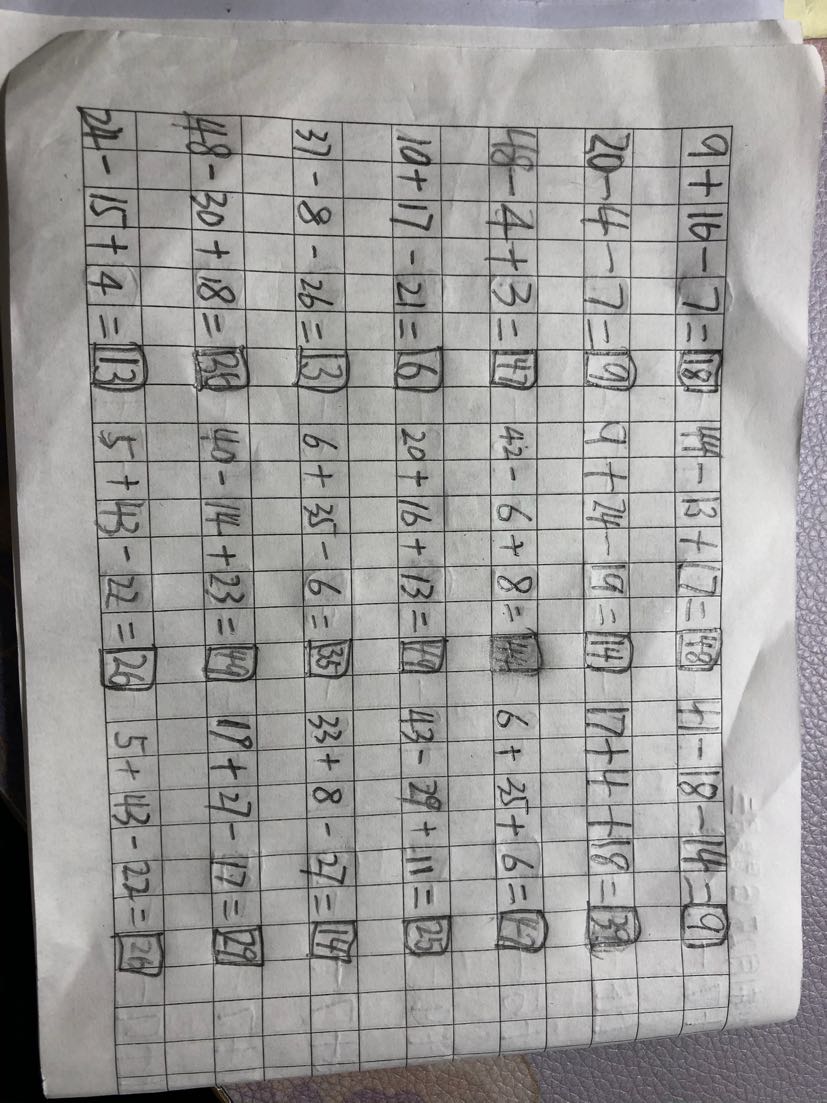 9+16-7=18 44-13+17=48 41-18-14=9
20-4-7=9 9+24-19=14 17+4+18=39
48-4+3=47 42-6+8=44 6+35+6=47
10+17-21=6 20+16+13=49 43-29+11=25
37-8-26=3 6+35-6=35 33+8-27=14
48-30+18=36 40-14+23=49 19+27-17=29
24-15+4=13 5+43-22=26 5+43-22=26